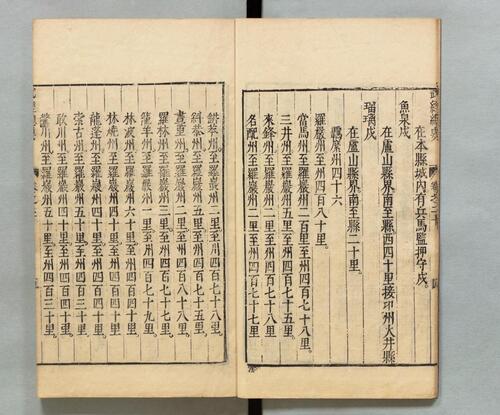 在本縣城內有兵馬監押守戍。
魚泉戍
在廬山縣界南至縣西四十里接邛州火井縣
瑠璃戍
在廬山縣界南至縣二十里。
羈縻州四十六
羅巖州至州四百八十里。
當馬州至羅巖州二百里至州四百七十八里。
三井州至羅巖州二里至州四百七十五里。
來鋒州至羅巖州二里至州四百七十八里
名配州至羅巖州二里至州四百七十七里
恭州至羅巖州二里。至州四百里。
斜恭州至羅巖州五里至州四百八十八里。
畫重州至羅巖州二里至州四百七十八里
羅林州至羅巖州三里。至州四百七十八里
龍羊州至羅巖州一里至州四百七十九里。
林波州至羅巖州六十里至州四百三十里。
林燒州至羅巖州四十里至州四百四十里。
龍蓬州至羅巖州四十里至州四百四十里。
索古州至羅巖州五十里至州四百三十里。
敢川州至羅巖州四十里至州四百四十里。
驚川州至羅巖州五十里至州四百三十里。